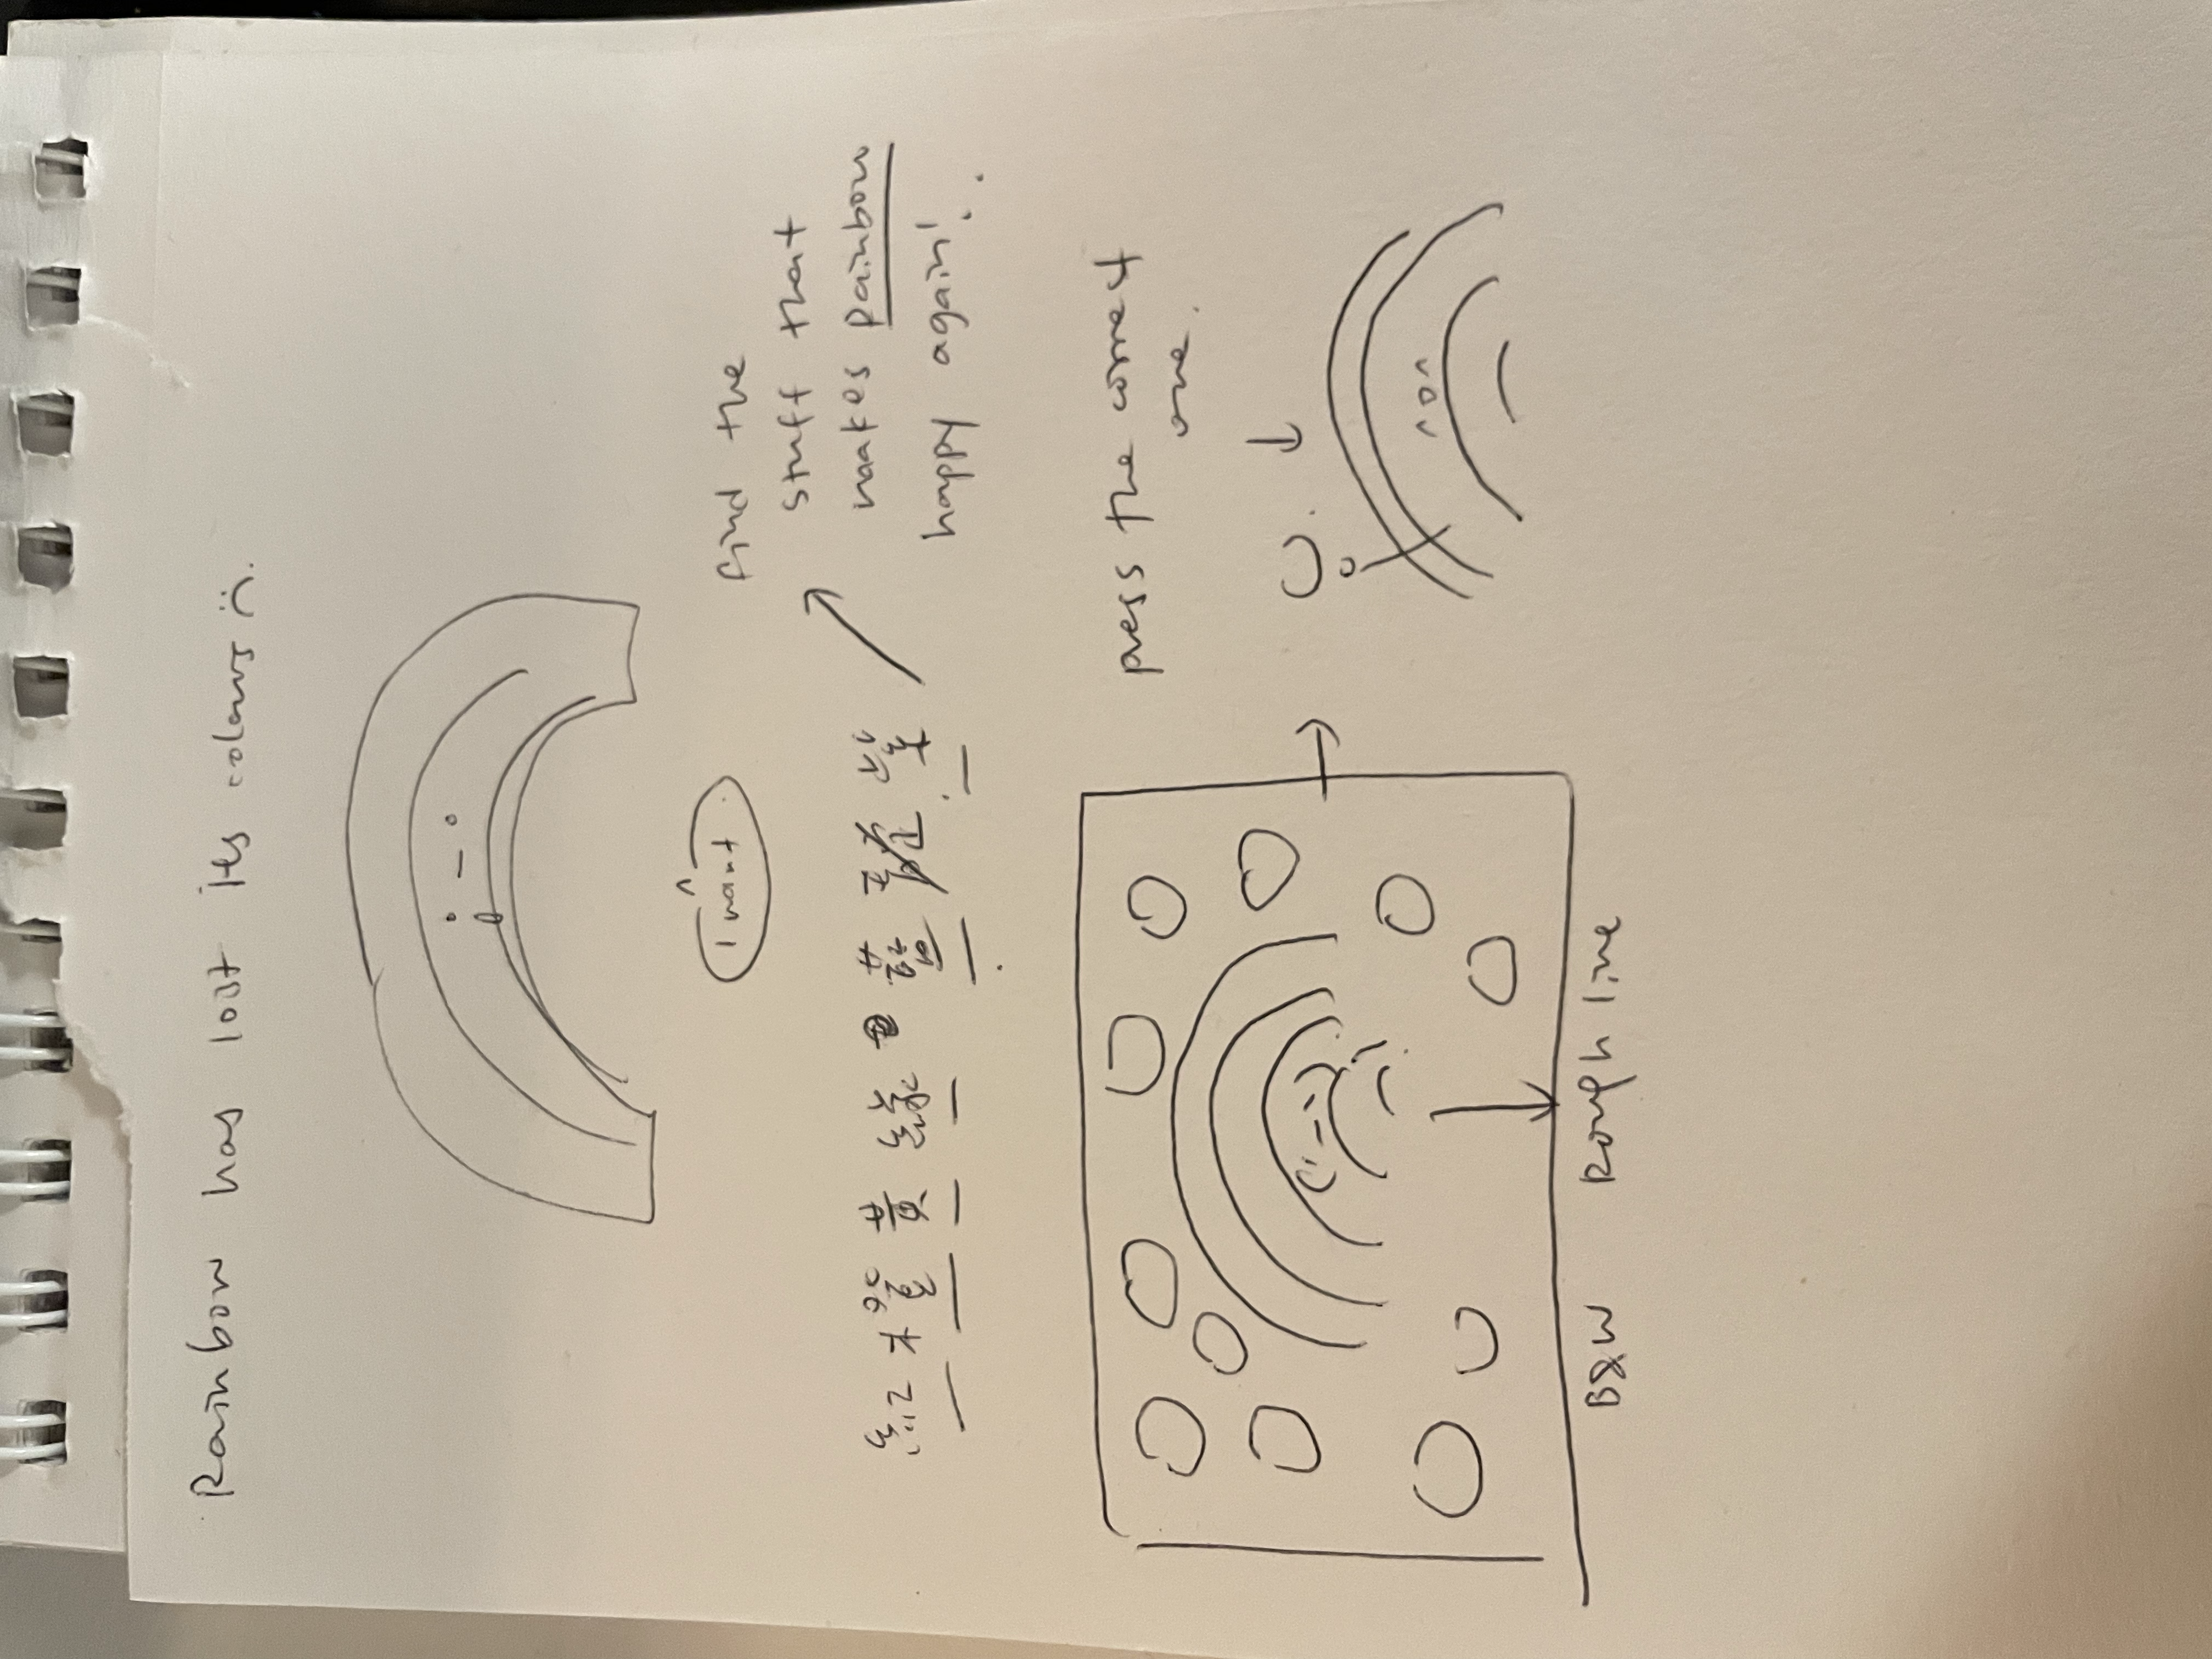 Rainbow has lost its colours :(.
I want
find the
stuff that
makes Rainbow
happy again!
紅橙黃綠藍靛紫
press the correct
one.
B&W Rough line